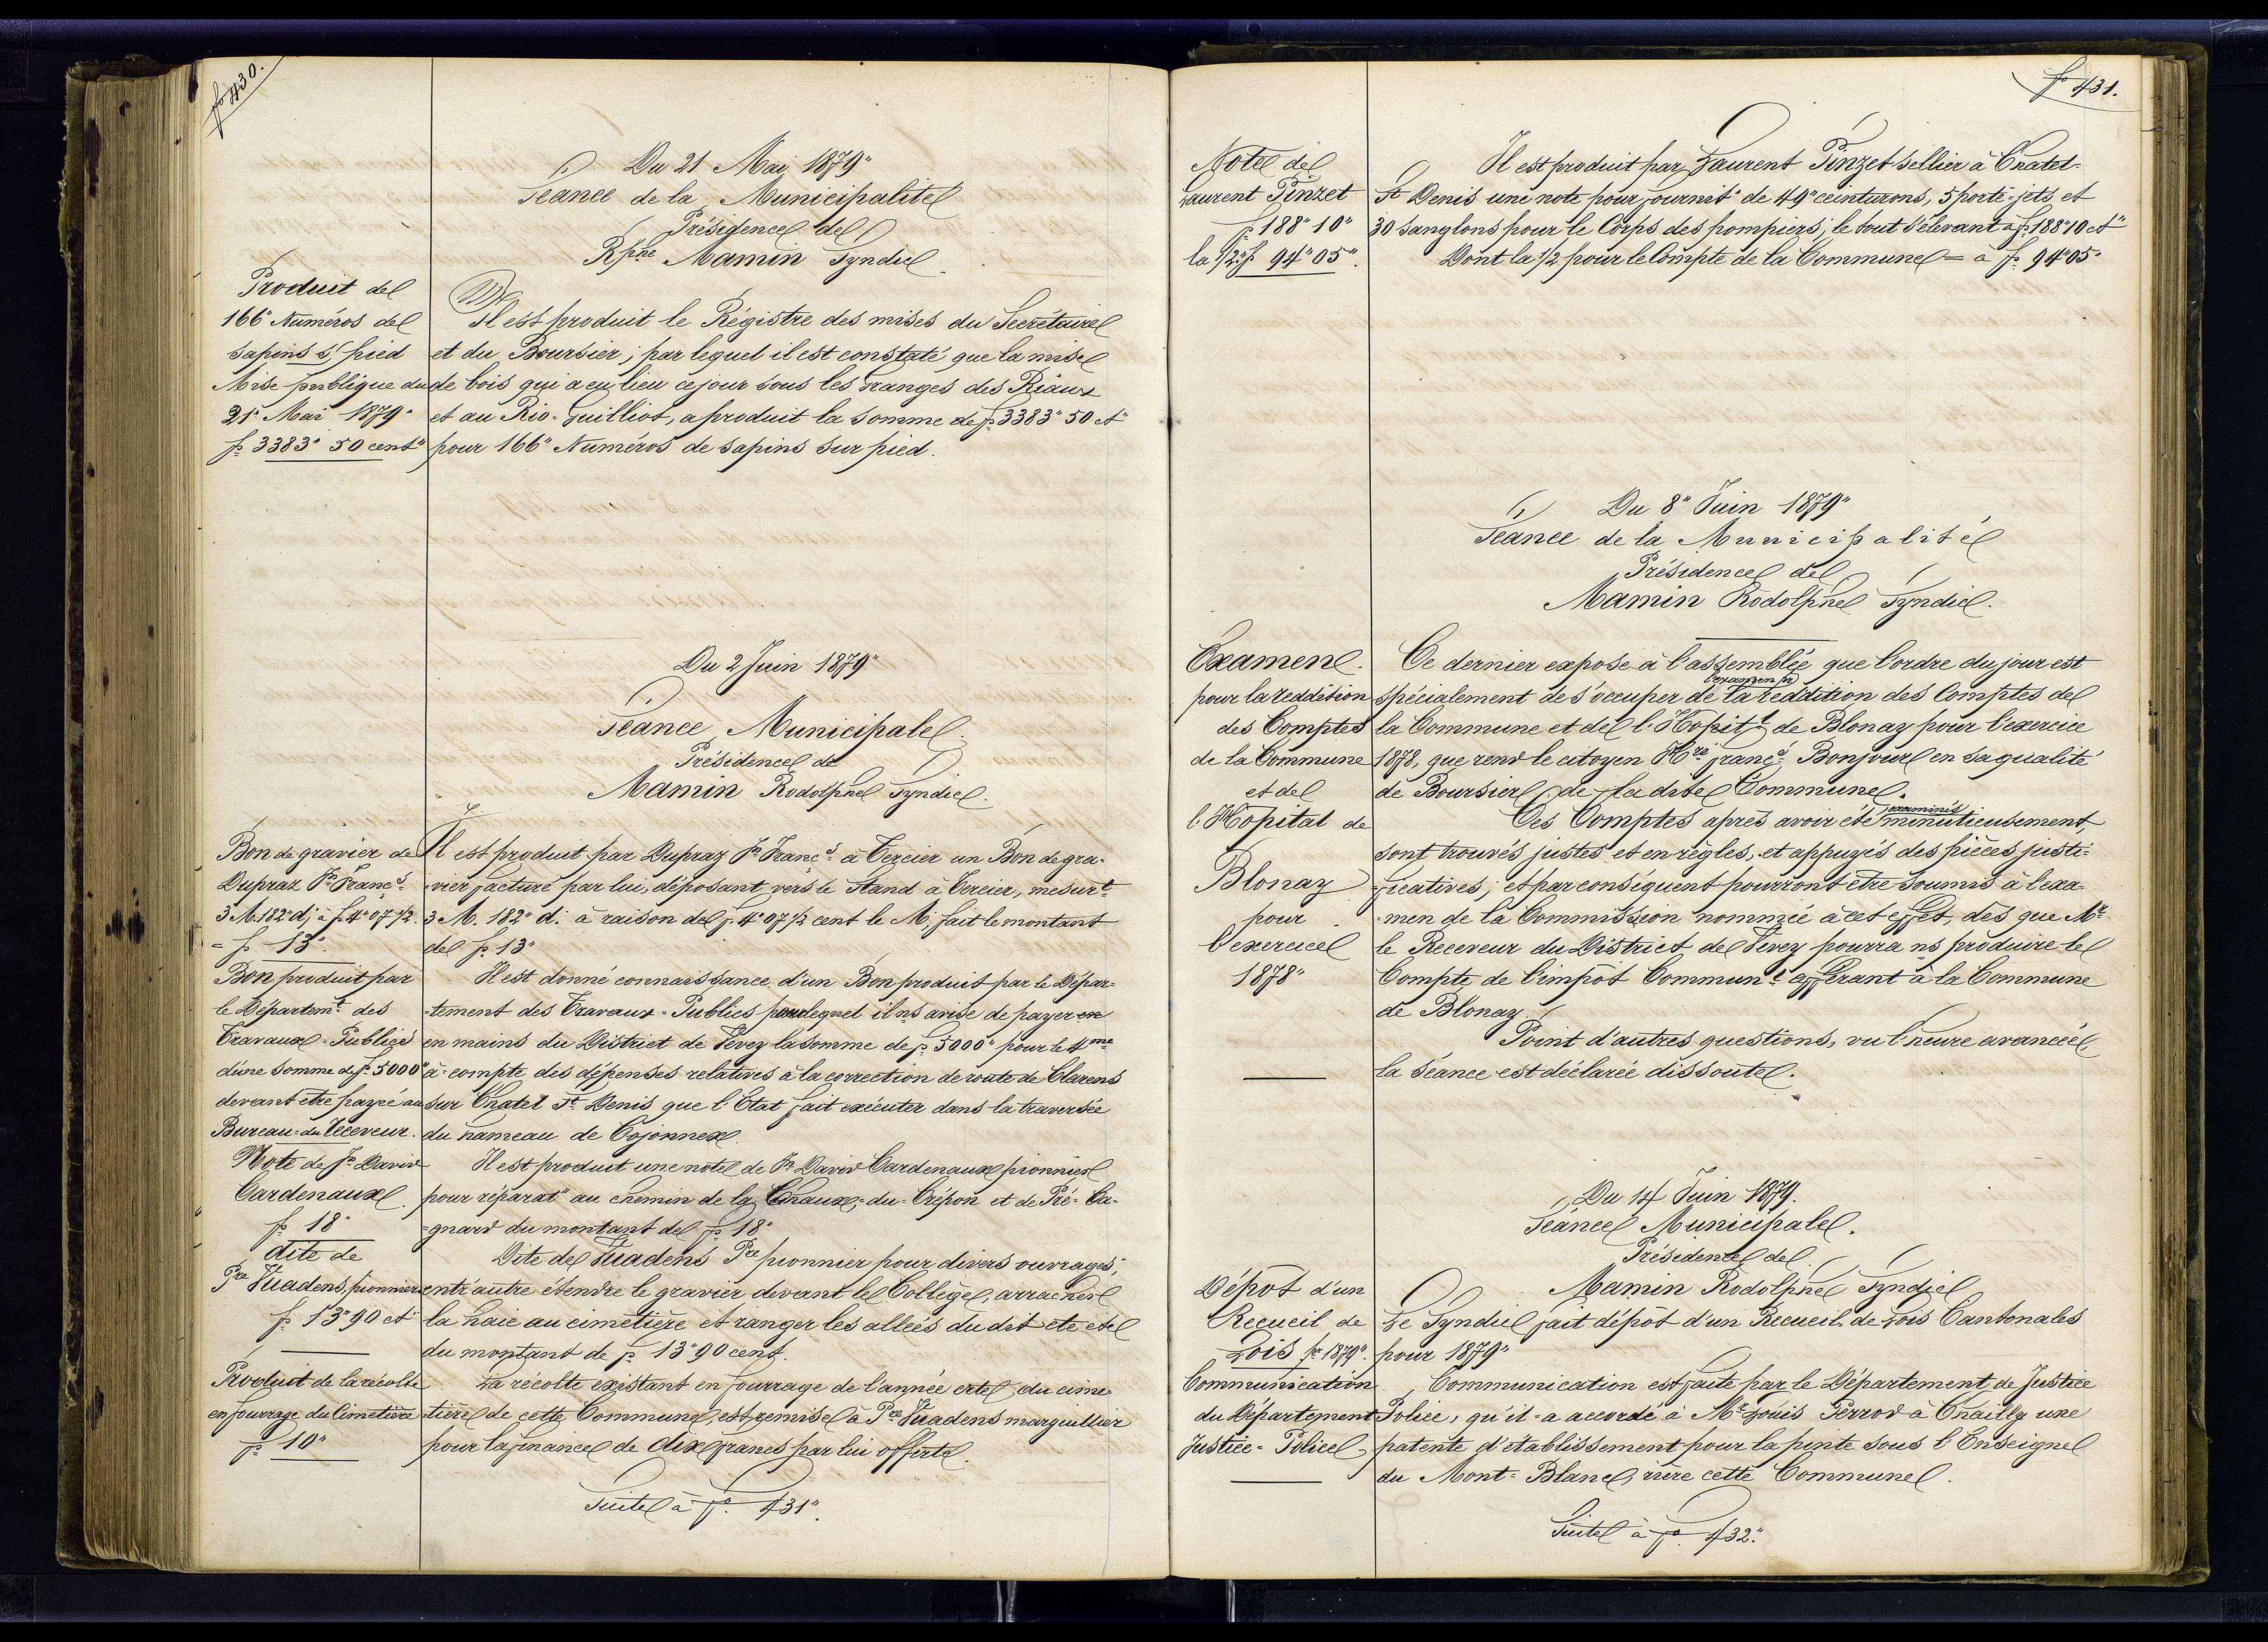 fo 430.
Du 21 Mai 1879"
Séance de la Municipalité
Présidence de
Rphe Mamin Syndic
Produit de
166" Numéros de
sapins s/ pied
Mise publique du
21" Mai 1879"
fr 3383" 50 cent"
Il est produit le Régistre des mises du Secrétaire
et du Boursier; par lequel il est constaté que la mise
de bois qui a eu lieu ce jour sous les Granges des Riaux
et au Rio-Guilliot, a produit la somme de fr 3383" 50 ct"
pour 166" Numéros de sapins sur pied.
Du 2 Juin 1879"
Séance Municipale
Présidence de
Mamin Rodolphe Syndic.
Bon de gravier de
Dupraz Fs Franç.s
3 M. 182" d; à f. 4" 07 1/2.
= fr 13"
Il est produit par Dupraz Fs Franç.s à Tercier un Bon de gra-
-vier facturé par lui, déposant vers le Stand à Tercier, mesurt
3 M. 182" d: à raison de f. 4" 07 1/2 cent le M, fait le montant
de fr 13"
Bon produit par
le Départemt des
Travaux=Publics
d'une somme de fr 5000"
devant être payée au
Bureau=du Receveur.
Il est donné connaissance d'un Bon produit par le Dépar=
=tement des Travaux=Publics par lequel il ns avise de payer en
en mains du District de Vevey la somme de fr 5000" pour le 4me
à=compte des dépenses relatives à la correction de route de Clarens
sur Chatel St Denis que l'Etat fait exécuter dans la traversée
du hameau de Cojonnex.
Note de Js David
Cardenaux.
fr 18"
Il est produit une note de Js David Cardenaux pionnier
pour réparat" au chemin de la Chaux,=du=Crépon et de Pré=Ca-
=gnard du montant de fr 18"
dite de
Pre Vuadens, pionnier
fr 13" 90 ct
Dite de Vuadens Pre pionnier pour divers ouvrages;
entr'autre étendre le gravier devant le Collège, arracher
la haie au cimetière et ranger les allées du dit etc etc
du montant de fr 13" 90 cent.
Produit de la récolte
en fourrage du Cimetière
fr 10"
La récolte existant en fourrage de l'année crte du cime-
-tière de cette Commune, est remise à Pre Vuadens marguillier
pour la finance de dix francs par lui offerte.
Suite à fo 431".
fo 431.
Note de
Laurent Pinzet
fr 188" 10"
la 1/2" fr 94" 05".
Il est produit par Laurent Pinzet sellier à Chatel-
St Denis une note pour fournit" de 49" ceinturons, 5 porte=jets et
30 sanglons pour le Corps des pompiers; le tout s'élevant à fr 188" 10 ct"
Dont la 1/2 pour le Compte de la Commune = à fr 94" 05"
Du 8" Juin 1879"
Séance de la Municipalité
Présidence de
Mamin Rodolphe Syndic.
Examen
pour la reddition
des Comptes
de la Commune
et de
l'Hôpital de
Blonay
pour
l'exercice
1878"
Ce dernier expose à l'assemblée que l'ordre du jour est
l'examen pr
spécialement de s'occuper de la reddition des Comptes de
la Commune et de l'Hopitl de Blonay pour l'exercice
1878, que rend le citoyen Hre Franç.s Bonjour en sa qualité
de Boursier de la dite Commune.
examinés
Ces Comptes après avoir été minutieusement,
sont trouvés justes et en règles, et appuyés des pièces justi=
=ficatives; et par conséquent pourront être soumis à l'exa-
-men de la Commission nommée à cet effet, dès que Mr
le Receveur du District de Vevey pourra ns produire le
Compte de l'impôt Communl afférant à la Commune
de Blonay.
Point d'autres questions, vu l'heure avancée
la séance est déclarée dissoute.
Du 14 Juin 1879.
Séance Municipale.
Présidence de
Mamin Rodolphe Syndic
Dépôt d'un
Recueil de
Lois pr 1879".
Le Syndic fait dépôt d'un Recueil de Lois Cantonales
pour 1879"
Communication
du Département
Justice=Police
Communication est faite par le Département de Justice
Police, qu'il=a accordé à Mr Louis Perrod à Chailly une
patente d'établissement pour la pinte sous l'Enseigne
du Mont=Blanc, rière cette Commune.
Suite à fo 432".